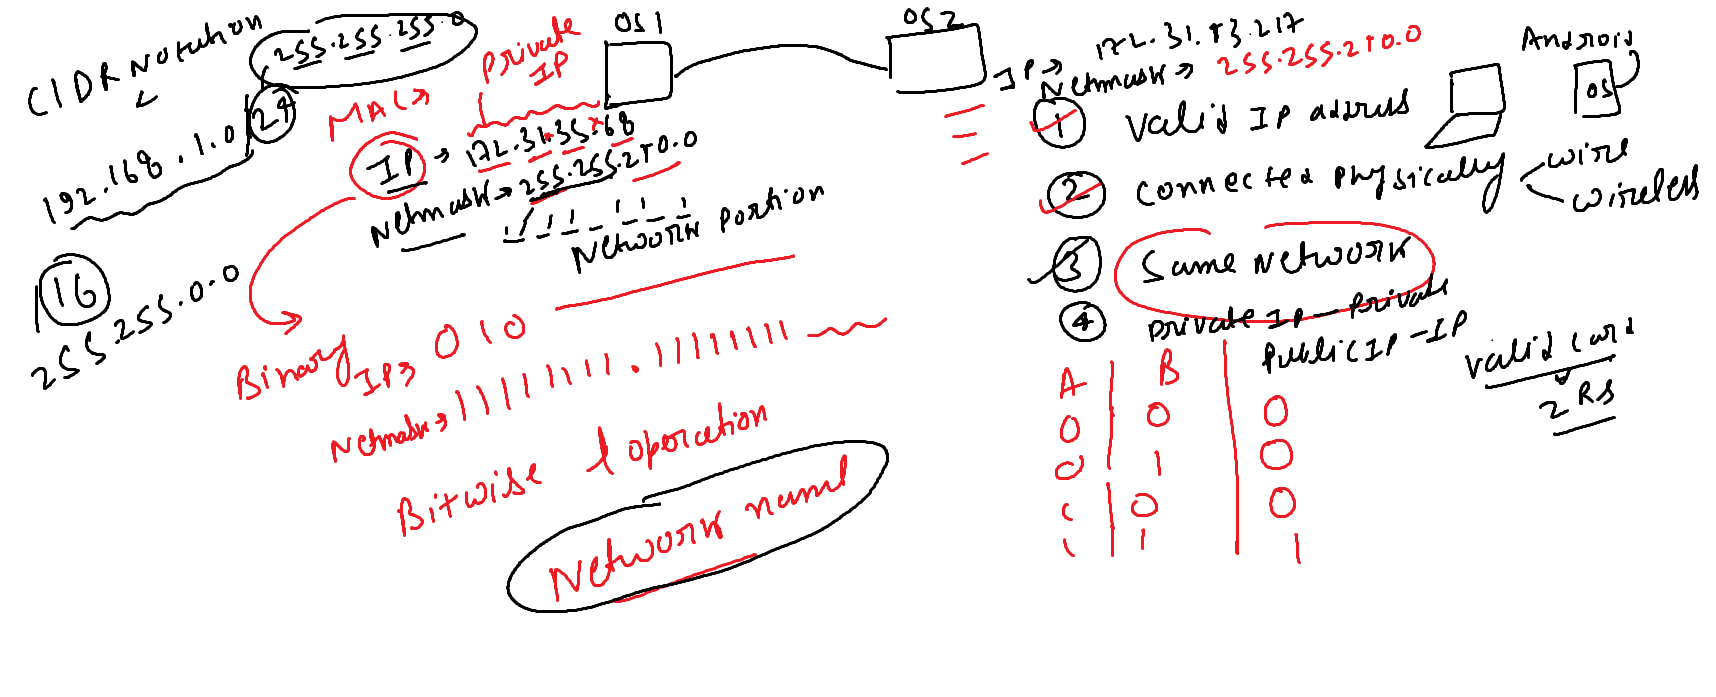 CIDR Notation
255.255.255.0
192.168.1.0/24
/16
255.255.0.0
Private
IP
MAC→
OS1
IP → 172.31.35.68
Netmask → 255.255.240.0
1 1 1 1 _ 1 1 1 1
Network Portion
Binary
IP→ 010
Netmask→ 11111111.11111111
Bitwise & operation
Network name
OS2
IP→ 172.31.43.217
Netmask → 255.255.240.0
1 Valid IP address
2 Connected Physically
wire
wireless
3 Same Network
4 Private IP - Private
Public IP - IP
Android
OS
Valid Card
2 RS
A B
0 0 0
0 1 0
1 0 0
1 1 1